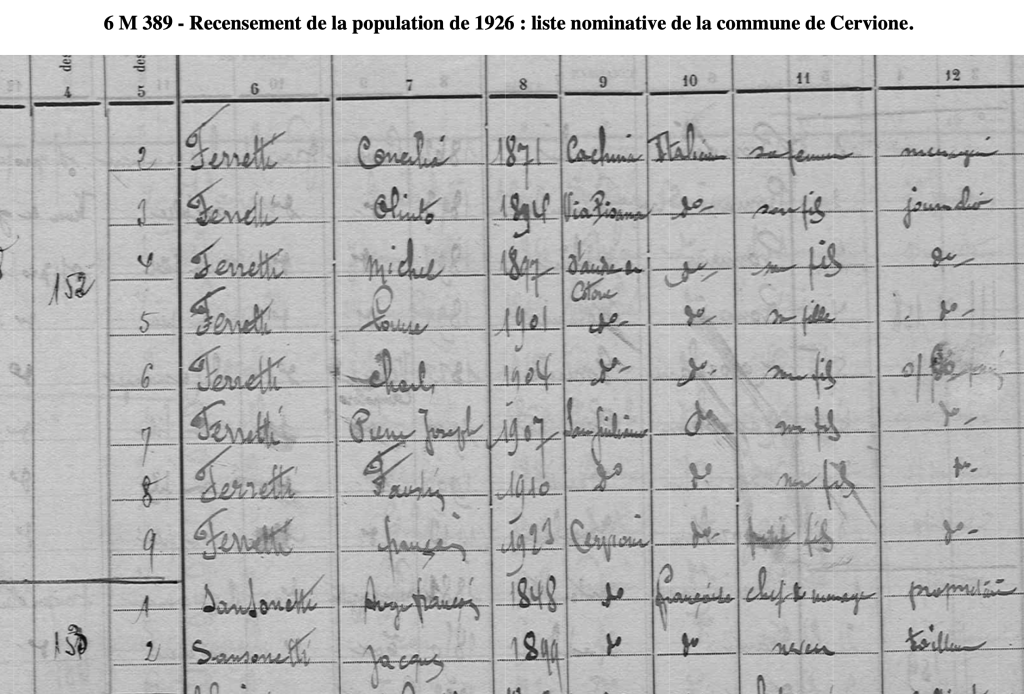 6 M 389 - Recensement de la population de 1926 : liste nominative de la commune de Cervione.
des des
4 5 6 7 8 9 10 11 12
2 Ferretti 1871 sa femme
3 Ferretti Olinto 1894 do son fils journalier
152 4 Ferretti Michel 1897 do son fils do
5 Ferretti Louise 1901 do do sa fille do
6 Ferretti Charles 1904 do do son fils
7 Ferretti Pierre Joseph 1907 do son fils do
8 Ferretti 1910 do do son fils do
9 Ferretti François 1923 Cervioni do petit fils do
1 Sansonetti Ange françois 1848 do française chef de menage propriétaire
153 2 Sansonetti Jacques 1899 do do neveu tailleur